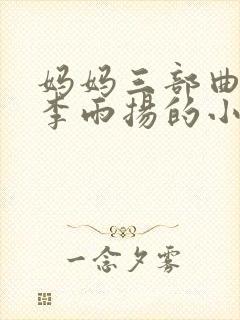 妈妈三部曲
李雨揚的小
一念夕雾